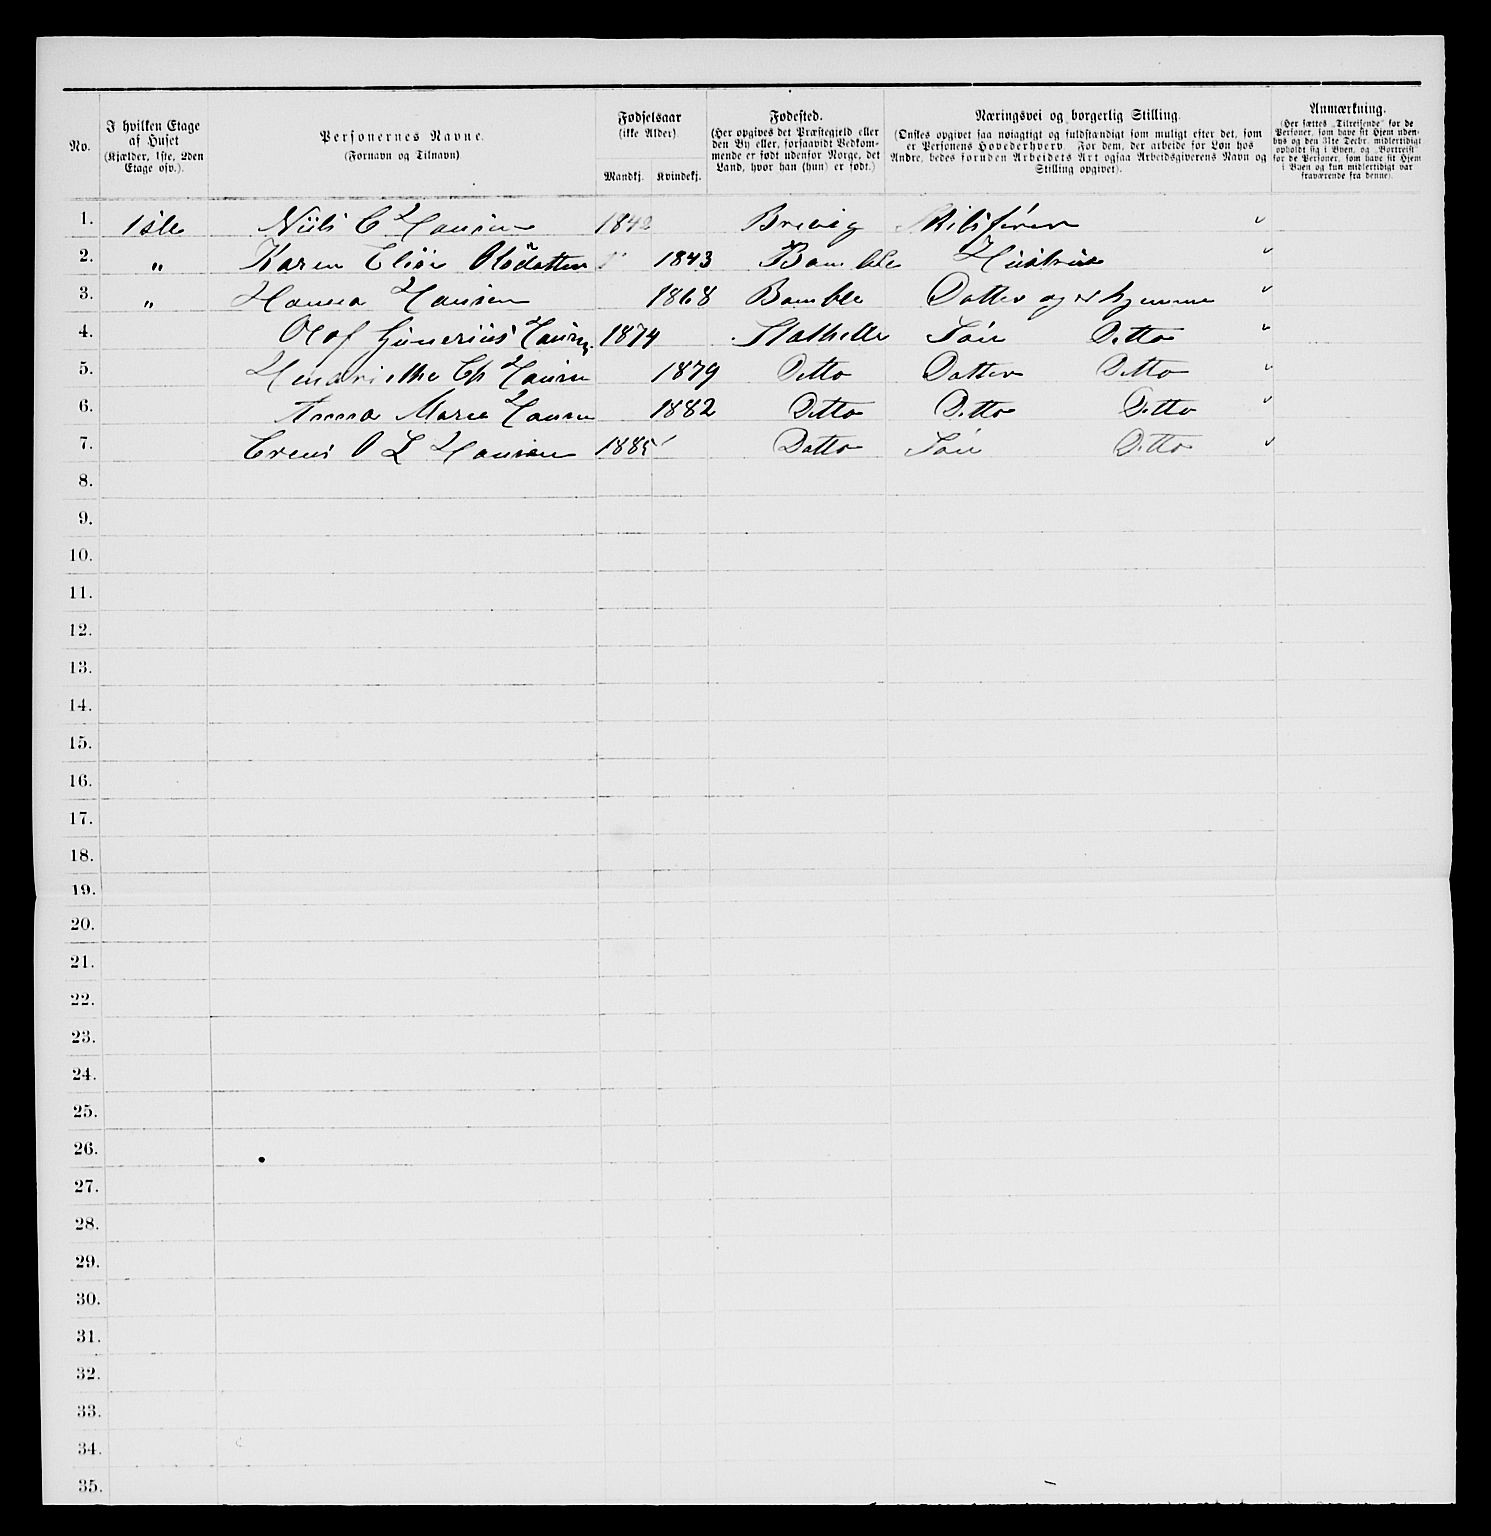 No.
I hvilken Etage af Huset (Kjælder, 1ste, 2den Etage osv.).
Personernes Navne. (Fornavn og Tilnavn)
Fødselsaar (ikke Alder)
Mandkj. Kvindekj.
Fødested. (Her opgives det Præstegjeld eller den By eller, forsaavidt Vedkommende er født udenfor Norge, det Land, hvor han (hun) er født.)
Næringsvei og borgerlig Stilling. (Ønskes opgivet saa nøiagtigt og fuldstændigt som muligt efter det, som er Personens Hovederhverv. For dem, der arbeide for Løn hos Andre, bedes foruden Arbeidets Art ogsaa Arbeidsgiverens Navn og Stilling opgivet).
Anmærkning. (Her sættes „Tilreisende" for de Personer, som have sit Hjem udenbys og den 31te Decbr. midlertidigt opholdt sig i Byen, og „Bortreist" for de Personer, som have sit Hjem i Byen og kun midlertidigt var fraværende fra denne).
1. 1ste Niils C Hansen 1842 Brevig Skibsfører "
2. " Karen Elise Olsdatter 1843 Bamble Hustrue "
3. " Hanna Hansen 1868 Bamble Datter og er hjemme "
4. Olaf Gunerius Hansen 1874 Stathelle Søn Ditto "
5. Hendrikke Ch Hansen 1879 Ditto Datter Ditto "
6. Anna Marie Hansen 1882 Ditto Ditto Ditto "
7. O L Hansen 1885 Ditto Søn Ditto "
8.
9.
10.
11.
12.
13.
14.
15.
16.
17.
18.
19.
20.
21.
22.
23.
24.
25.
26.
27.
28.
29.
30.
31.
32.
33.
34.
35.